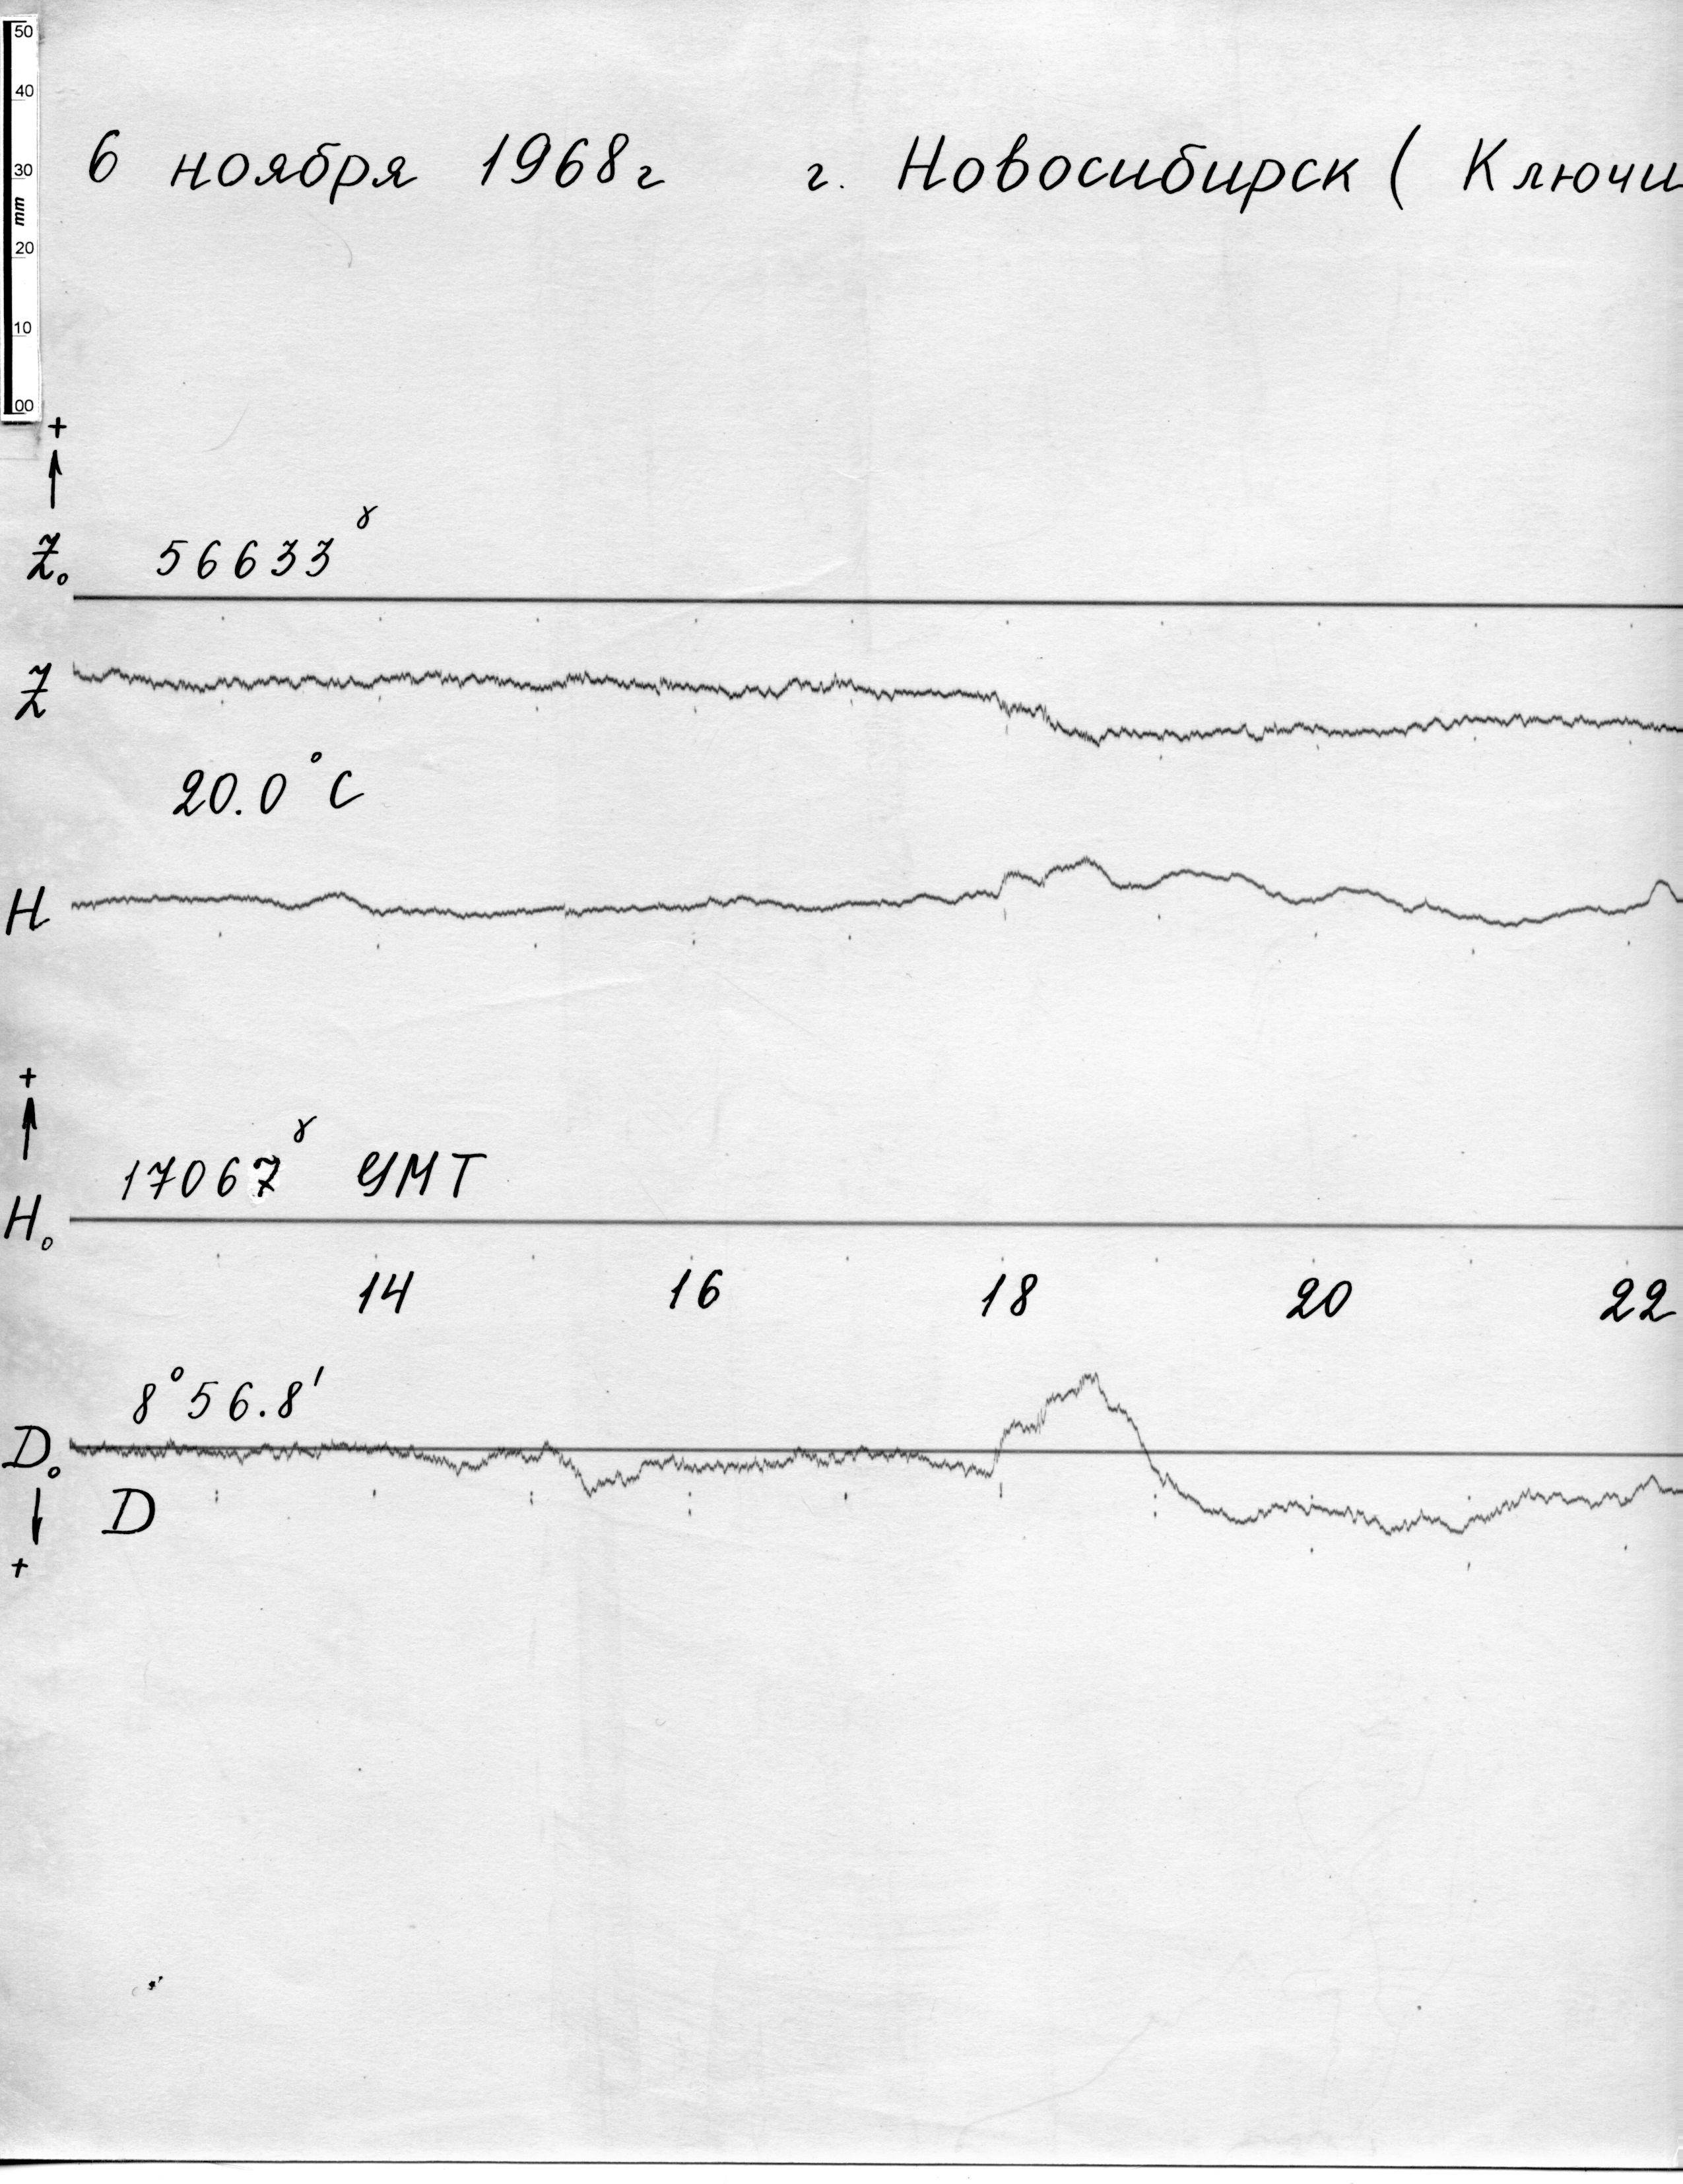 50
40
30
mm
20
10
00
6 ноября 1968г г. Новосибирск ( Ключи
+
Z₀ 56633ᵞ
Z
20.0°C
H
+
17067ᵞ УМТ
H₀
14 16 18 20 22
8°56.8'
D₀
D
+